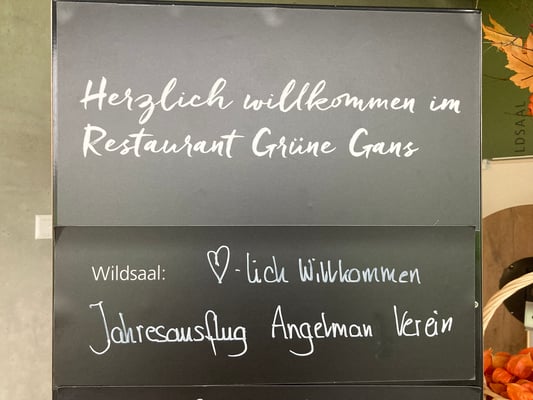 Herzlich willkommen im
Restaurant Grüne Gans
Wildsaal: ♡-lich Willkommen
Jahresausflug Angelman Verein
LDSAAL